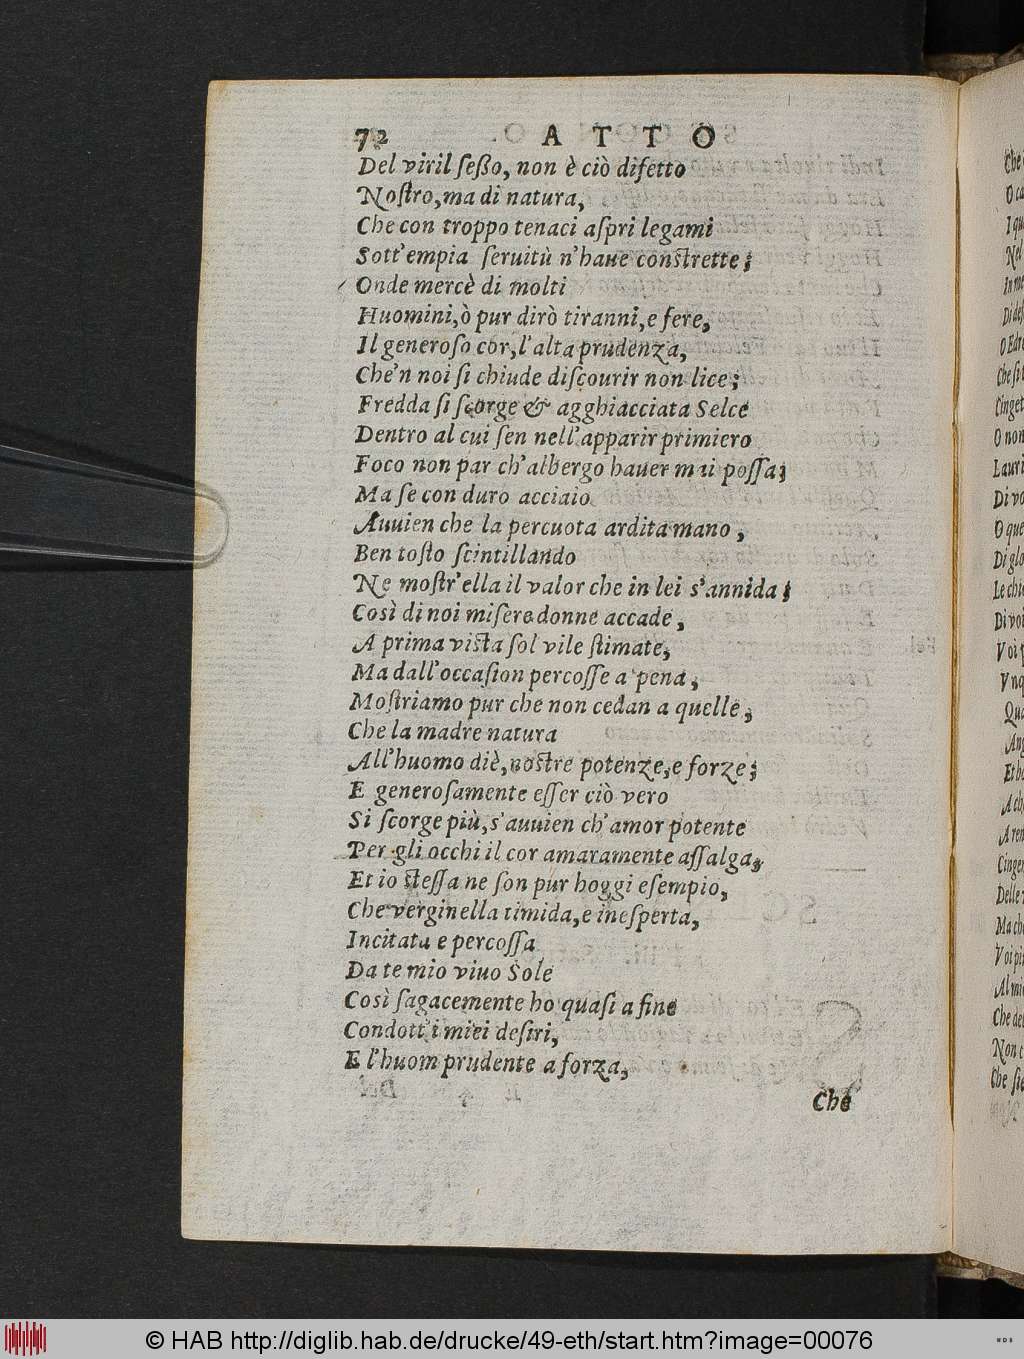 72 ATTO
Del viril seßo, non è ciò difetto
Nostro, ma di natura,
Che con troppo tenaci aſpri legami
Sott'empia ſeruitù n'haue constrette;
Onde mercè di molti
Huomini, ò pur dirò tiranni, e fere,
Il generoſo cor, l'alta prudenza,
Che'n noi ſi chiude diſcourir non lice;
Fredda ſi ſcorge & agghiacciata Selce
Dentro al cui ſen nell'apparir primiero
Foco non par ch'albergo hauer mai poſſa;
Ma ſe con duro acciaio
Auuien che la percuota ardita mano,
Ben toſto ſcintillando
Ne moſtr'ella il valor che in lei s'annida;
Così di noi miſere donne accade,
A prima vista ſol vile ſtimate,
Ma dall'occaſion percoſſe a pena,
Moſtriamo pur che non cedan a quelle,
Che la madre natura
All'huomo diè, nostre potenze, e forze;
E generoſamente eſſer ciò vero
Si ſcorge più, s'auuien ch'amor potente
Per gli occhi il cor amaramente aſſalga,
Et io steſſa ne ſon pur hoggi eſempio,
Che verginella timida, e ineſperta,
Incitata e percoſſa
Da te mio viuo Sole
Così ſagacemente ho quaſi a fine
Condott'i miei deſiri,
E l'huom prudente a forza,
Che
© HAB http://diglib.hab.de/drucke/49-eth/start.htm?image=00076